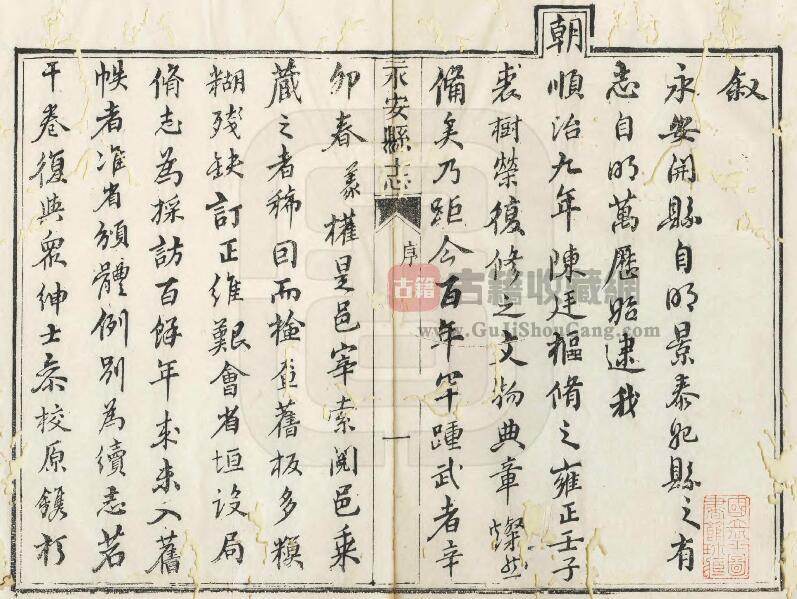 叙
永安開縣自明景泰始縣之有
志自明萬歷始逮我
朝順治九年陳廷樞脩之雍正壬子
裘樹榮復修之文物典章燦然
備矣乃距今百年罕踵武者辛
永安縣志 序 一
卯春義權是邑宰索閱邑乘
藏之者稀因而檢查舊板多糢
糊殘缺訂正維艱會省垣設局
脩志為採訪百餘年來未入舊
帙者准省頒體例別為續志若
干卷復與眾紳士叅校原鐫於
古籍
古籍收藏網
www.GuJiShouCang.com